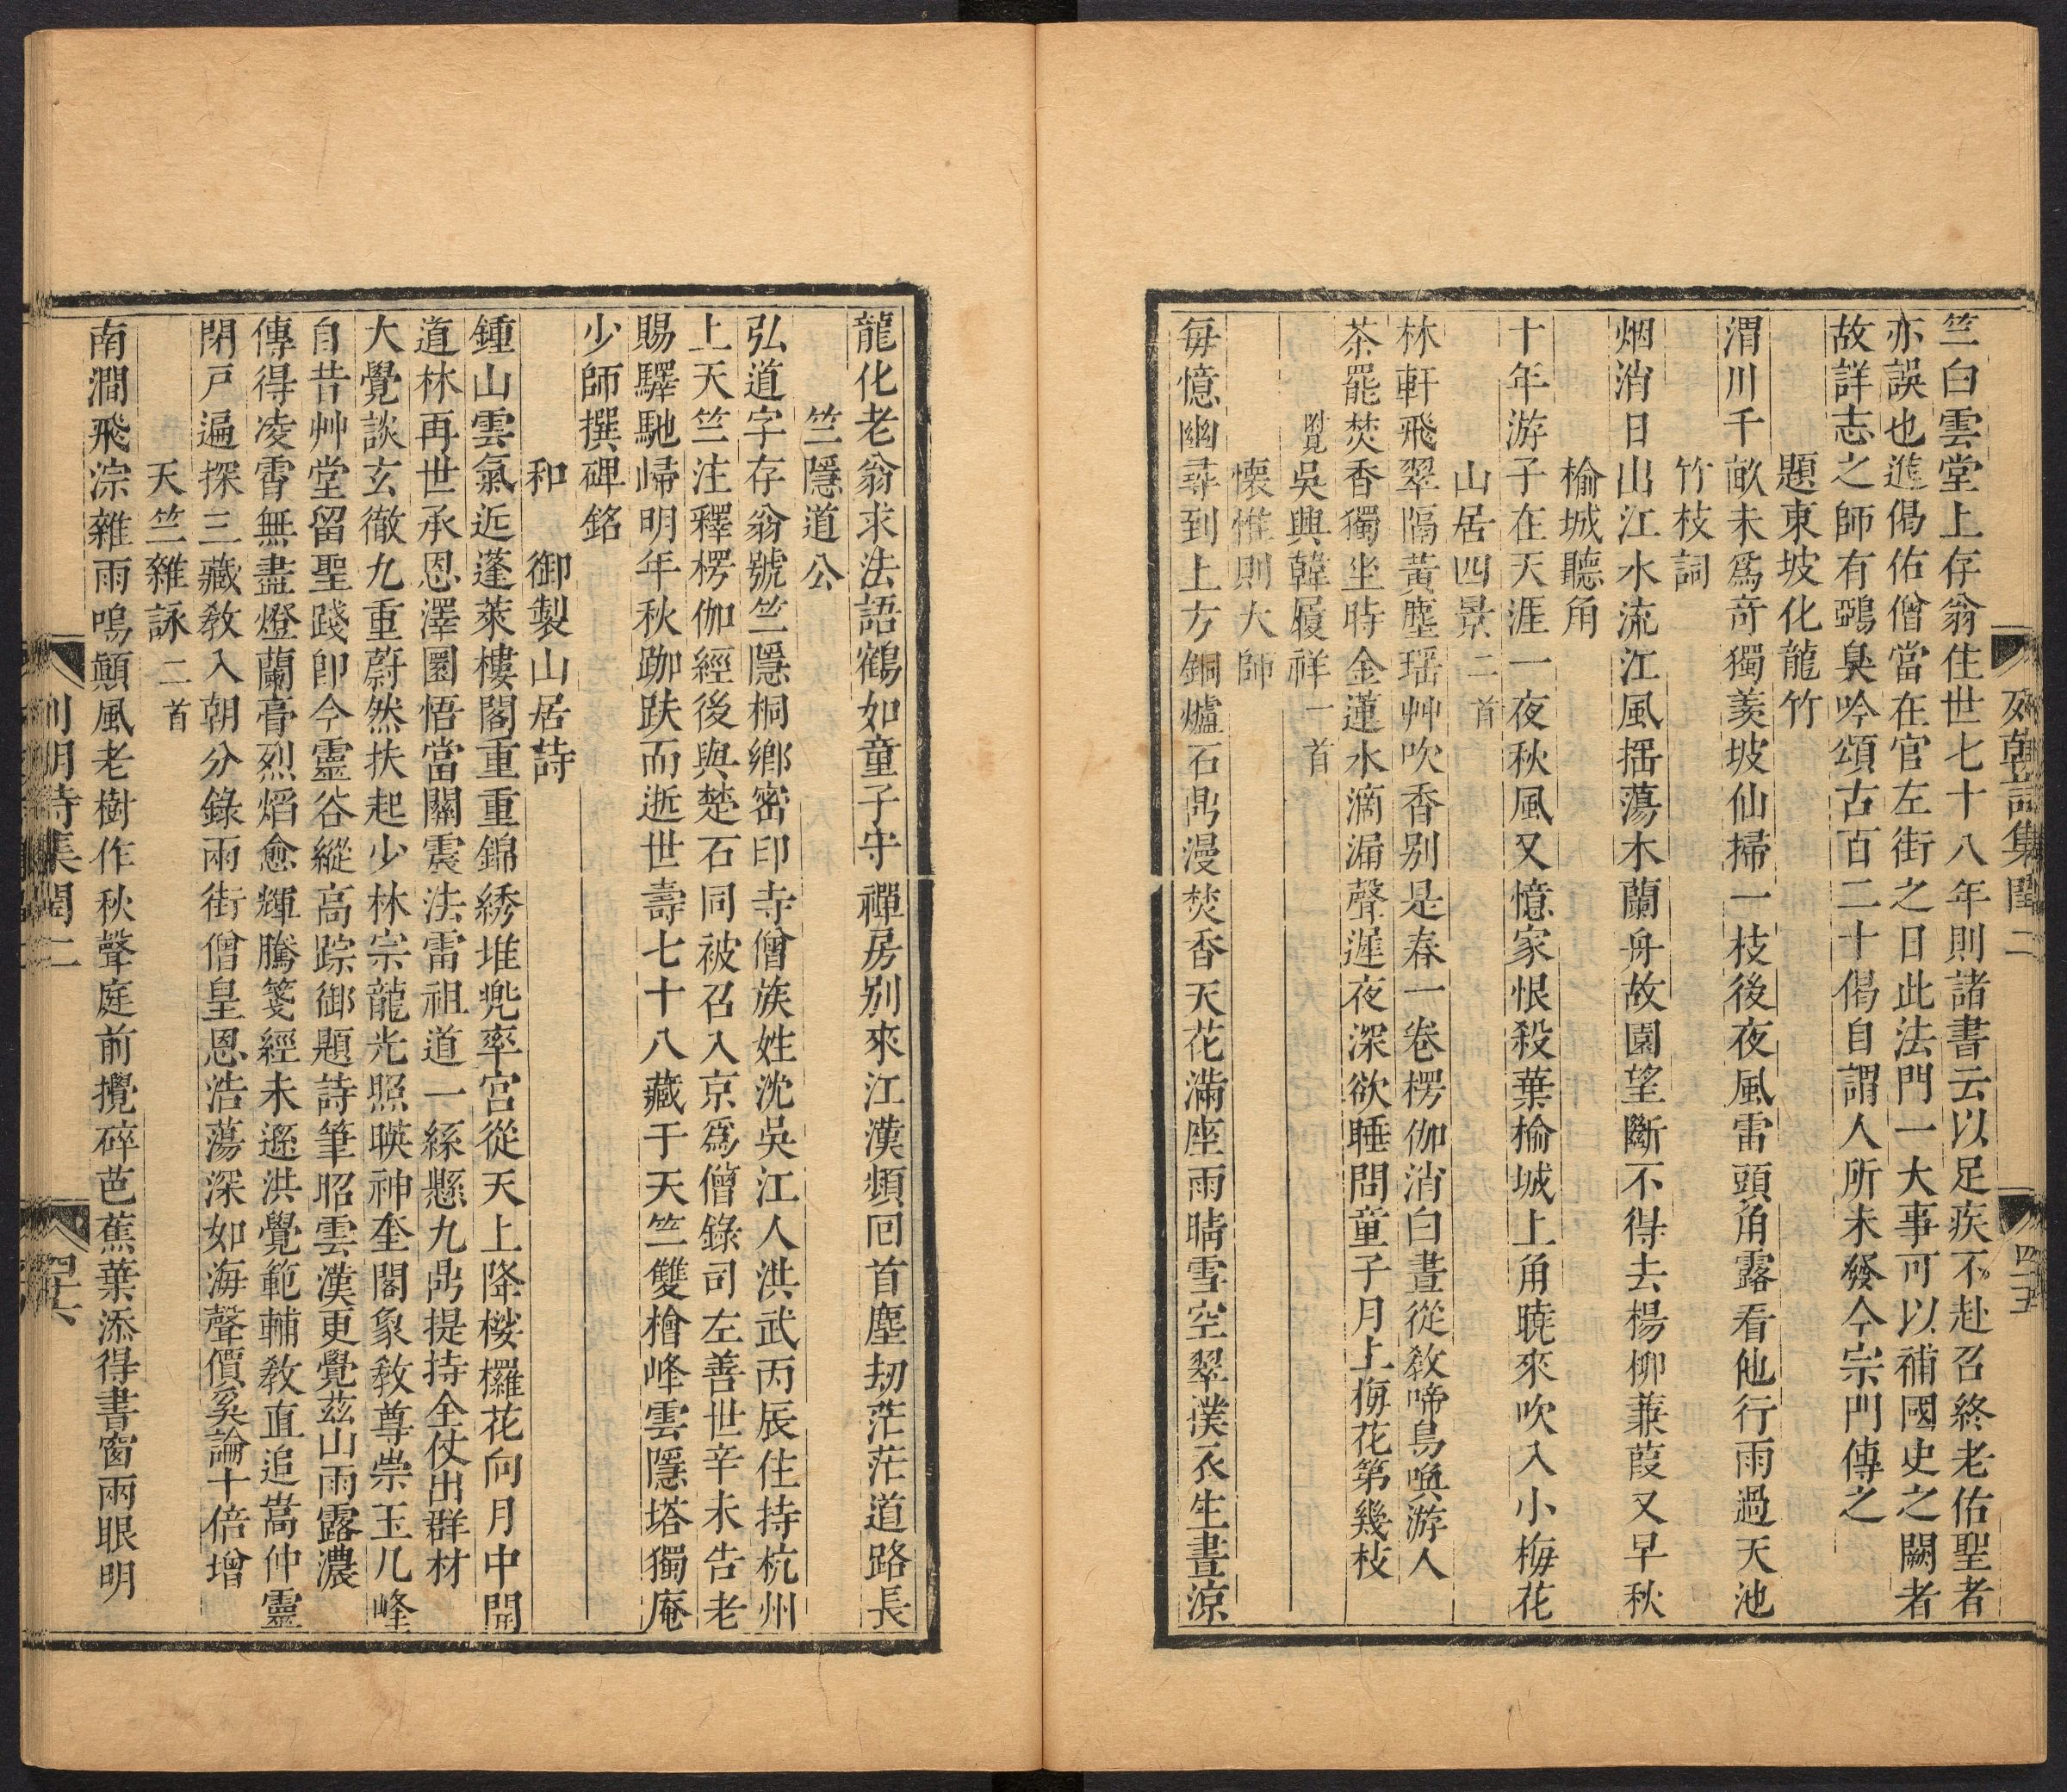 竺白雲堂上存翁住世七十八年則諸書云以足疾不赴召終老佑聖者
亦誤也進偈佑僧當在官左街之日此法門一大事可以補國史之闕者
故詳志之師有鵶臭吟頌古百二十偈自謂人所未發今宗門傳之
題東坡化龍竹
渭川千畝未爲竒獨羨坡仙掃一枝後夜風雷頭角露看他行雨過天池
竹枝詞
烟消日出江水流江風揺蕩木蘭舟故園望斷不得去楊柳蒹葭又早秋
楡城聽角
十年游子在天涯一夜秋風又憶家恨殺葉楡城上角曉來吹入小梅花
山居四景二首
林軒飛翠隔黃塵瑶艸吹香别是春一卷楞伽消白晝從教啼鳥喚游人
茶罷焚香獨坐時金蓮水滴漏聲遲夜深欲睡問童子月上梅花第幾枝
附見吳興韓履祥一首
懷惟則大師
每憶幽尋到上方銅爐石鼎漫焚香天花滿座雨晴雪空翠撲衣生晝涼
列朝詩集閏二
四十五
龍化老翁求法語鶴如童子守禪房别來江漢頻囘首塵刧茫茫道路長
竺隱道公
弘道字存翁號竺隱桐鄉密印寺僧族姓沈吳江人洪武丙辰住持杭州
上天竺注釋楞伽經後與楚石同被召入京爲僧錄司左善世辛未告老
賜驛馳歸明年秋跏趺而逝世壽七十八藏于天竺雙檜峰雲隱塔獨庵
少師撰碑銘
和 御製山居詩
鍾山雲氣近蓬萊樓閣重重錦綉堆兠率宮從天上降桫欏花向月中開
道林再世承恩澤圜悟當關震法雷祖道一絲懸九鼎提持全仗出群材
大覺談玄徹九重蔚然扶起少林宗龍光照暎神奎閣象敎尊崇玉几峰
自昔艸堂留聖踐卽今靈谷縱高踪御題詩筆昭雲漢更覺茲山雨露濃
傳得凌霄無盡燈蘭膏烈熖愈輝騰箋經未遜洪覺範輔敎直追嵩仲靈
閉戸遍探三藏敎入朝分錄兩街僧皇恩浩蕩深如海聲價奚論十倍增
天竺雜詠二首
南澗飛淙雜雨鳴顛風老樹作秋聲庭前攪碎芭蕉葉添得書窗兩眼明
列朝詩集閏二
四十六